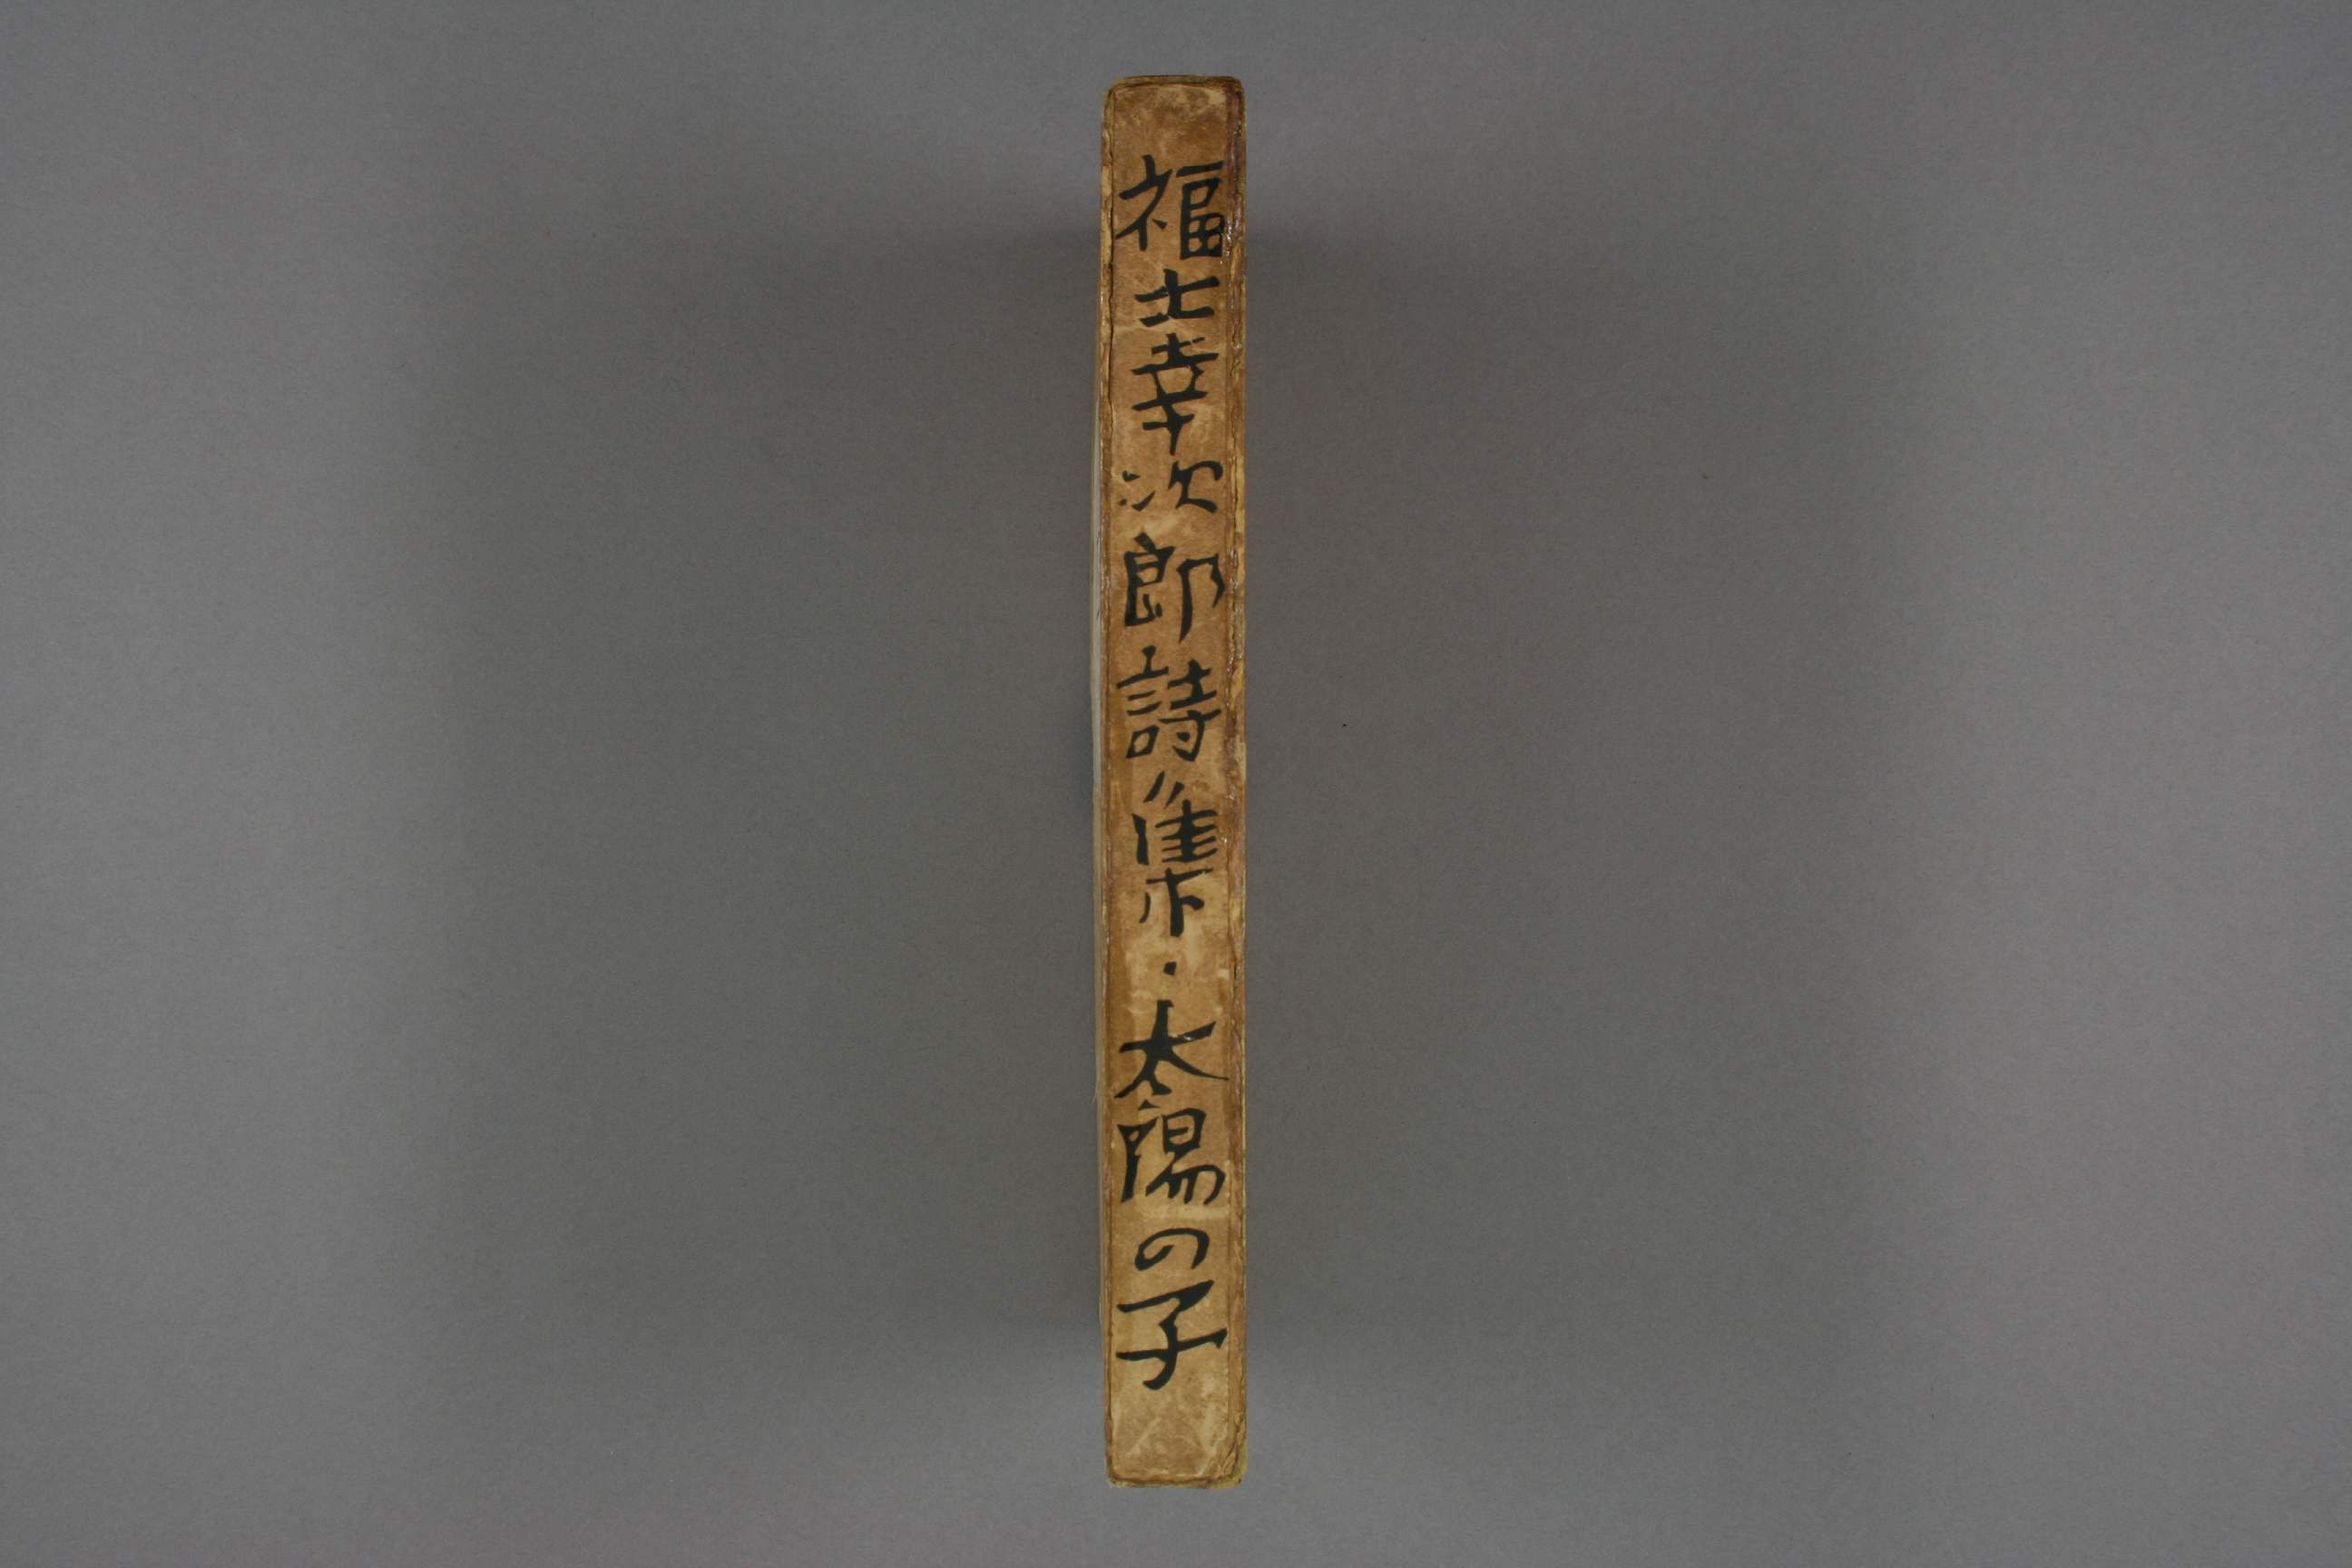 福士幸次郎詩集・太陽の子